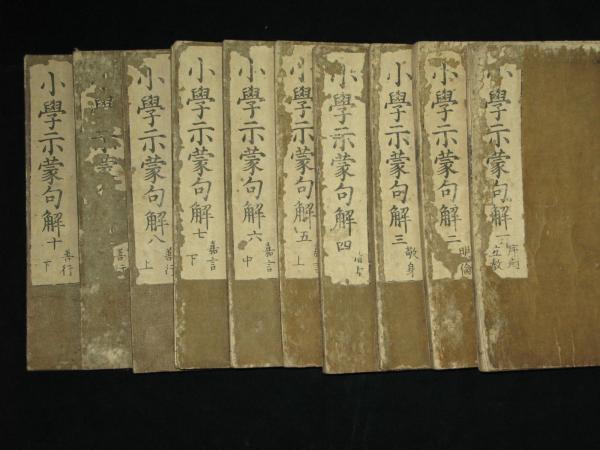 小學示蒙句解一
立教
小學示蒙句解二
明倫
小學示蒙句解三
敬身
小學示蒙句解四
小學示蒙句解五
上
小學示蒙句解六
嘉言
中
小學示蒙句解七
嘉言
下
小學示蒙句解八
善行
上
小學示蒙
善行
小學示蒙句解十
善行
下